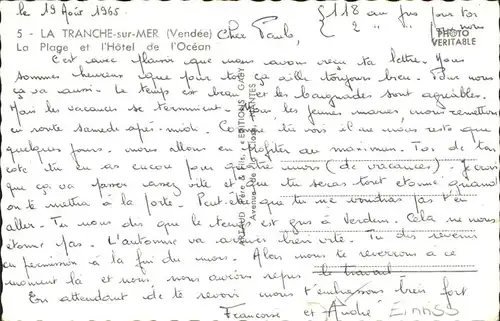 le 19 Août 1965.
118 au jus pour toi
2 " " pour nous
5 - LA TRANCHE-sur-MER (Vendée)
La Plage et l'Hôtel de l'Océan
PHOTO VÉRITABLE
Cher Paulo,
C'est avec plaisir que nous avons reçu ta lettre. Nous
sommes heureux que pour toi ça aille toujours bien. Pour nous
ça va aussi. Le temps est beau et les baignades sont agréables.
Mais les vacances se terminent. Nous, les jeunes mariés, nous remettons
en route samedi après-midi. Comme tu vois il ne nous reste que
quelques jours. nous allons en profiter au maximum. Toi de ton
côté tu en as encore pour quatre mois (de vacances). Je crois
que ça va passer assez vite et tu seras tout étonné quand
on te mettra à la porte. Peut-être que tu ne voudras pas t'en
aller. Tu nous dis que le temps est gris à Verdun. Cela ne nous
étonne pas. L'automne va arriver bien vite. Tu dois revenir
en permission à la fin du mois. Alors nous te reverrons à ce
moment là et nous, nous aurons repris le travail
En attendant de te revoir nous t'embrassons bien fort
Françoise et André
ARTAUD Père & Fils, ÉDITIONS GABY
NANTES